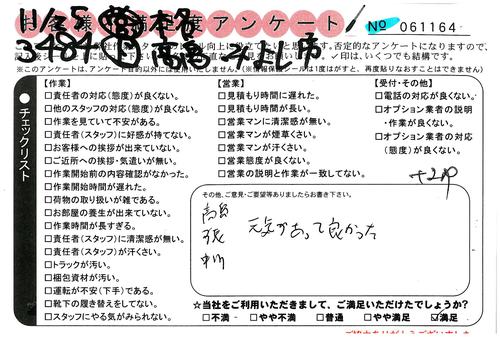 お客様満足度アンケート
No 061164
11/25
3484
※このアンケートは、アンケート目的以外には使用いたしません。(※情報保護シールは1度はがすと、再度貼りなおすことはできません)
チェックリスト
【作業】
□責任者の対応(態度)が良くない。
□他のスタッフの対応(態度)が良くない。
□作業を見ていて不安がある。
□責任者(スタッフ)に好感が持てない。
□お客様への挨拶が出来ていない。
□ご近所への挨拶・気遣いが無い。
□作業開始前の内容確認がなかった。
□作業開始時間が遅れた。
□荷物の取り扱いが雑である。
□お部屋の養生が出来ていない。
□作業時間が長すぎる。
□責任者(スタッフ)に清潔感が無い。
□責任者(スタッフ)が汗くさい。
□トラックが汚い。
□梱包資材が汚い。
□運転が不安(下手)である。
□靴下の履き替えをしてない。
□スタッフにやる気がみられない。
【営業】
□見積もり時間に遅れた。
□見積もり時間が長い。
□営業マンに清潔感が無い。
□営業マンが煙草くさい。
□営業マンが汗くさい。
□営業態度が良くない。
□営業の説明と作業が一致してない。
【受付・その他】
□電話の対応が良くない。
□オプション業者の説明
・作業が良くない。
□オプション業者の対応
(態度)が良くない。
その他、ご意見・ご要望等ありましたらお書き下さい。
元気があって良かった
☆当社をご利用いただきまして、ご満足いただけたでしょうか?
□不満 □やや不満 □普通 □やや満足 ☑満足